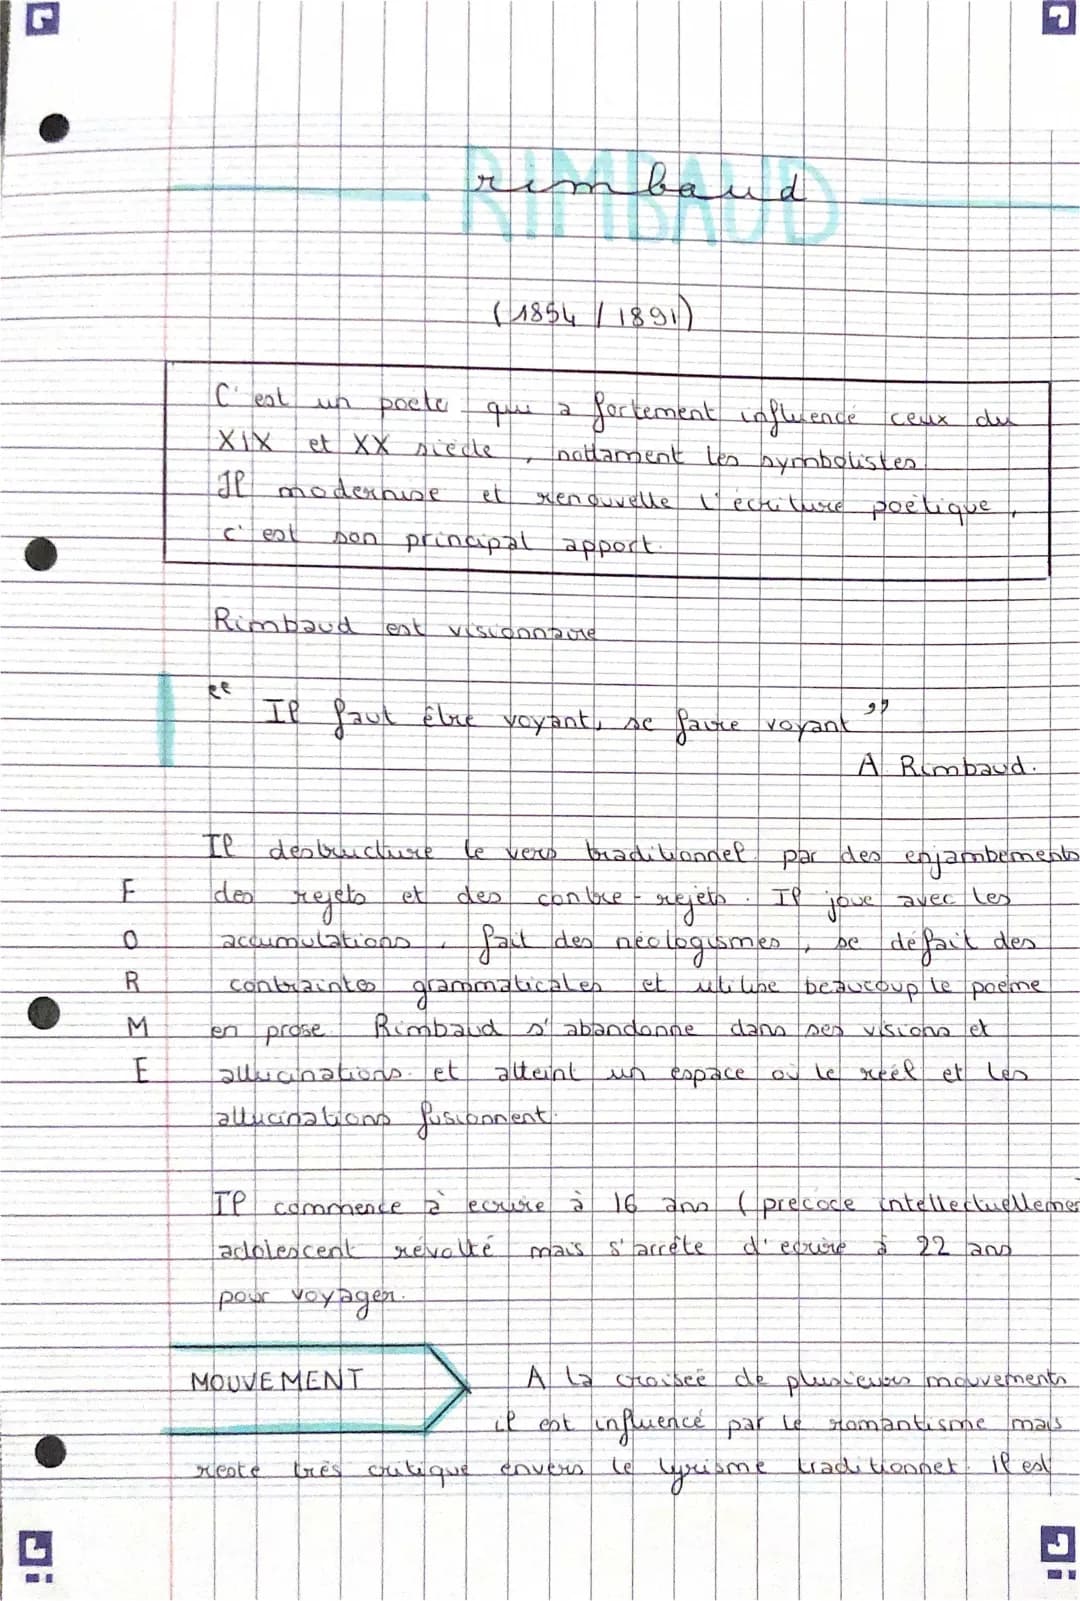 RIMBAUD
rimbaud
(1854 / 1891)
C'est un poete qui a fortement influencé ceux du
XIX et XX siecle, nottament les symbolistes
Il modernise et renouvelle l'écriture poétique,
c'est son principal apport.
Rimbaud est visionnaire
" Il faut être voyant, se faire voyant "
A. Rimbaud.
Il destructure le vers traditionnel par des enjambements
des rejets et des contre-rejets. Il joue avec les
accumulations, fait des néologismes, se défait des
contraintes grammaticales et utilise beaucoup le poeme
en prose. Rimbaud s'abandonne dans ses visions et
allucinations et atteint un espace où le réel et les
allucinations fusionnent.
FORME
Il commence à ecrire à 16 ans (precoce intellectuellemen
adolescent révolté mais s'arrête d'ecrire à 22 ans
pour voyager.
MOUVEMENT
A la croisée de plusieurs mouvements
il est influencé par le romantisme mais
reste très critique envers le lyrisme traditionnel. Il est